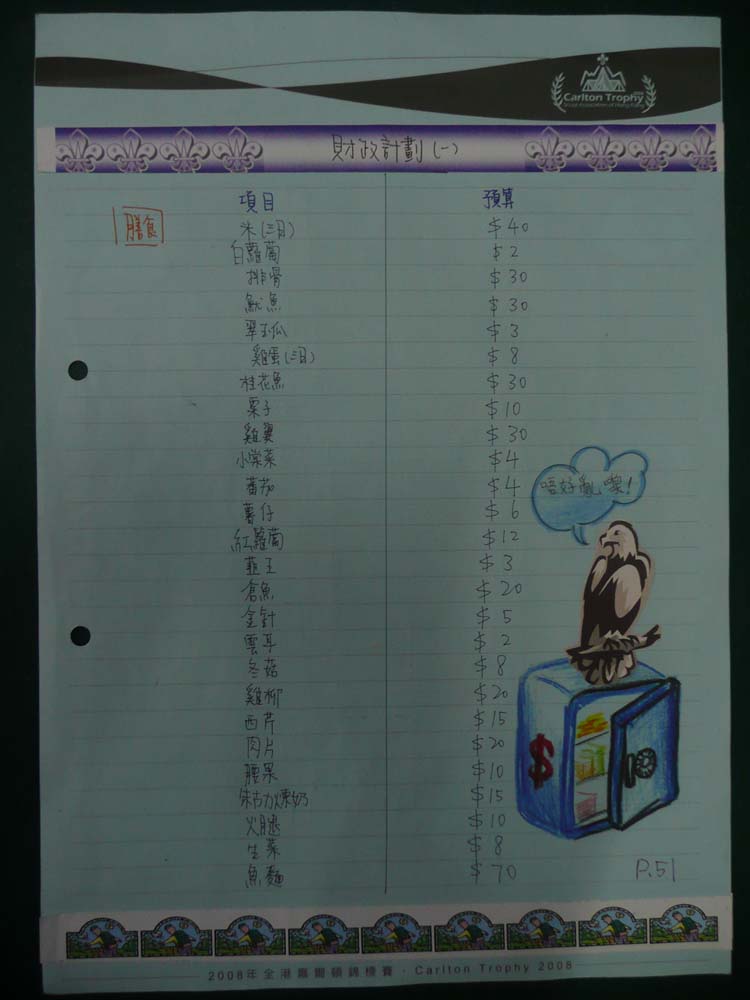 Carlton Trophy
Scout Association of Hong Kong
財政計劃(一)
項目 預算
膳食
米(三日) $40
白蘿蔔 $2
排骨 $30
魷魚 $30
翠玉瓜 $3
雞蛋(三日) $8
桂花魚 $30
栗子 $10
雞翼 $30
小棠菜 $4
蕃茄 $4
薯仔 $6
紅蘿蔔 $12
韮王 $3
倉魚 $20
金針 $5
雲耳 $2
冬菇 $8
雞柳 $20
西芹 $15
肉片 $20
腰果 $10
朱古力煉奶 $15
火腿 $10
生菜 $8
魚麵 $70
唔好亂嚟!
$
P.51
2008年全港嘉爾頓錦標賽 · Carlton Trophy 2008